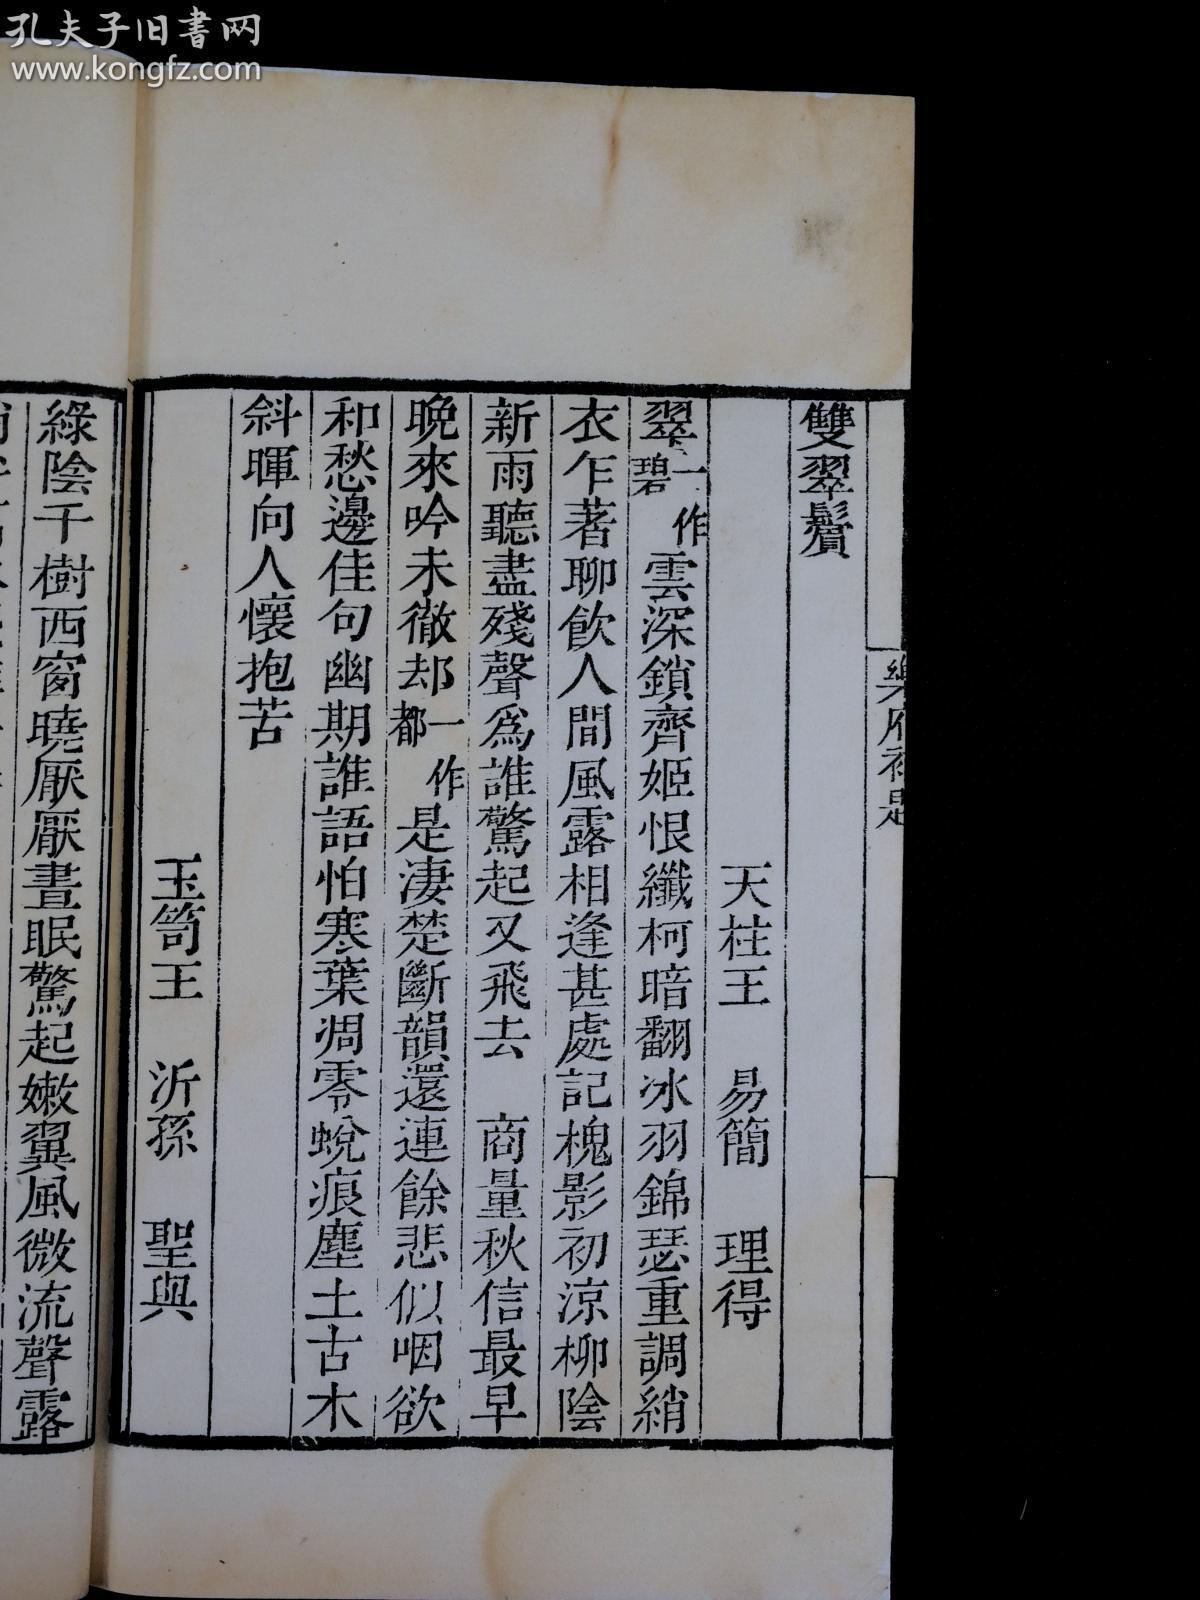 孔夫子旧书网
www.kongfz.com
樂府補題
雙翠鬟
天柱王　易簡　理得
翠一作碧雲深鎖齊姬恨纖柯暗翻冰羽錦瑟重調綃
衣乍著聊飲人間風露相逢甚處記槐影初涼柳陰
新雨聽盡殘聲爲誰驚起又飛去　商量秋信最早
晚來吟未徹却一作都是淒楚斷韻還連餘悲似咽欲
和愁邊佳句幽期誰語怕寒葉凋零蛻痕塵土古木
斜暉向人懷抱苦
玉笥王　沂孫　聖與
綠陰千樹西窗曉厭厭晝眠驚起嫩翼風微流聲露